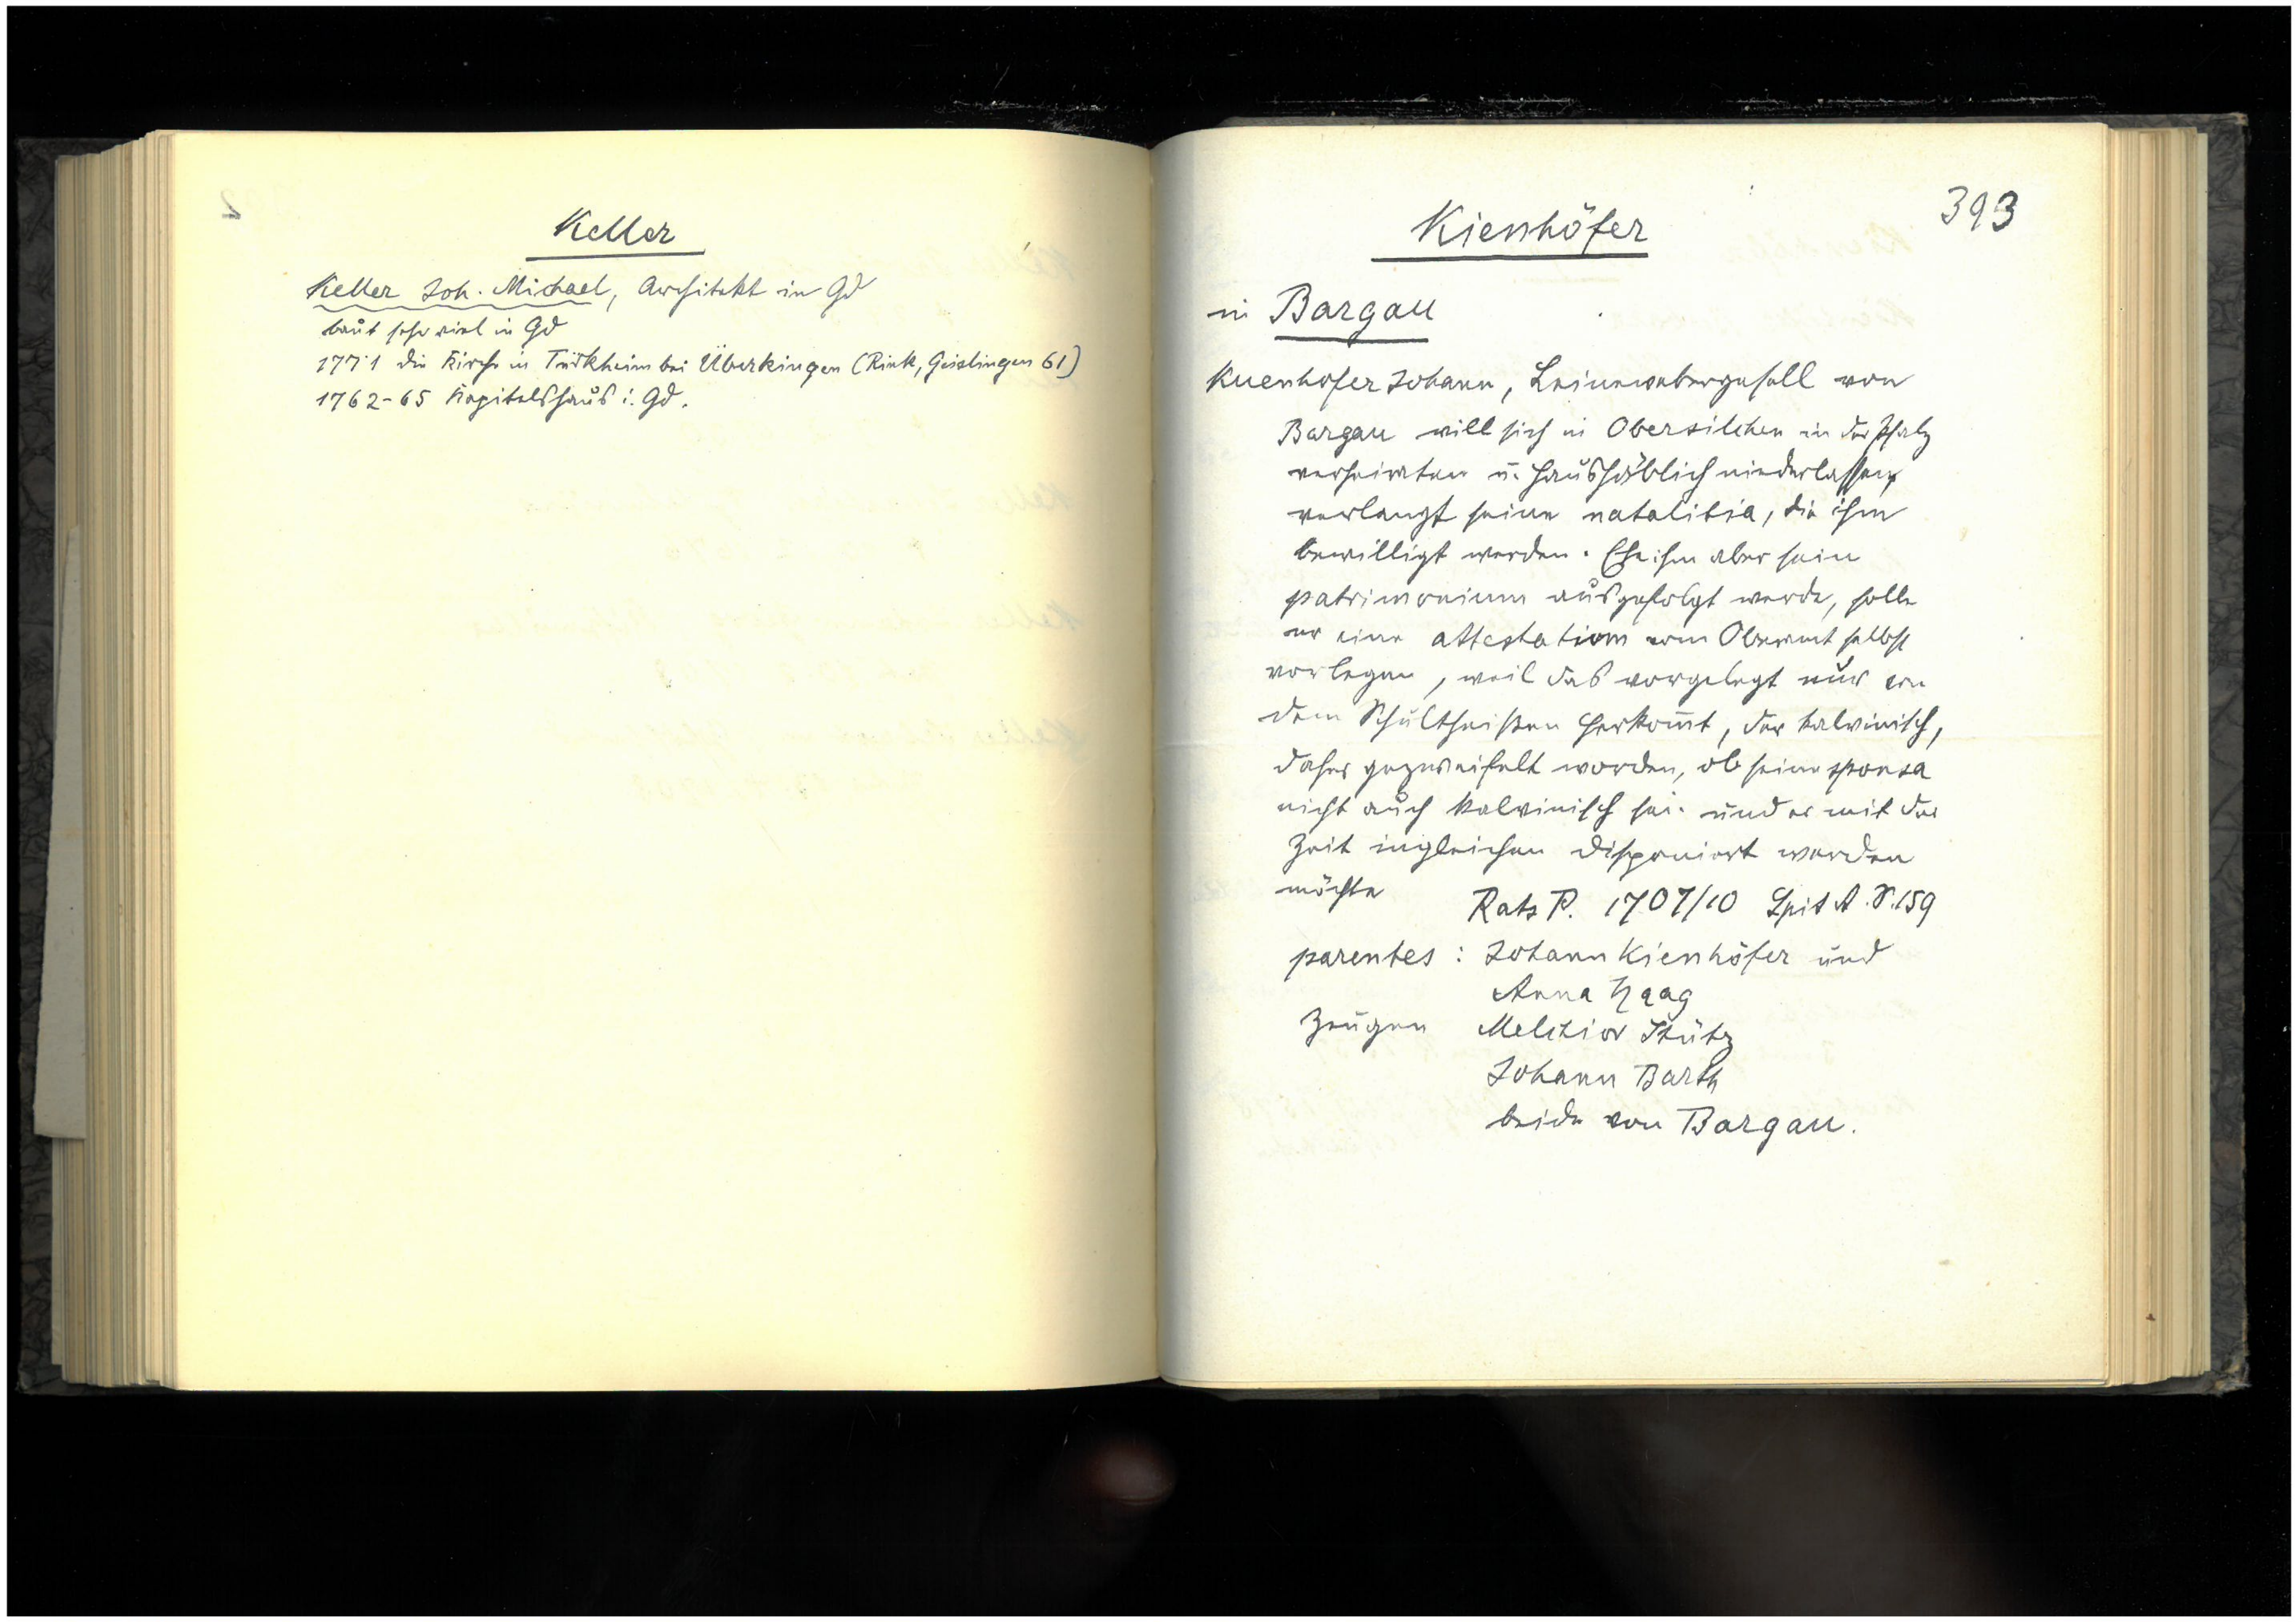 Keller
Keller Joh. Michael, Architekt in Gd
baut sehr viel in Gd
1771 die Kirche in Türkheim bei Überkingen (Rink, Geislingen 61)
1762-65 Kapitelshaus i. Gd.
393
Kienhöfer
in Bargau
Kuenhofer Johann, Leinewebergesell von
Bargau will sich in Obersilchen in der Pfalz
verheiraten u. haushäblich niederlassen,
verlangt seine natalitia, die ihm
bewilligt werden. Ehe ihm aber sein
patrimonium ausgefolgt werde, solle
er eine attestation vom Oberamt selbst
vorlegen, weil das vorgelegt nur von
dem Schultheißen herkom̅t, der kalvinisch,
daher gezweifelt worden, ob seine sponsa
nicht auch kalvinisch sei. und er mit der
Zeit ingleichen disponiert werden
möchte
Rats P. 1707/10 Spit A. S. 159
parentes: Johann Kienhöfer und
Anna Haag
Zeugen Melchior Stütz
Johann Barth
beide von Bargau.